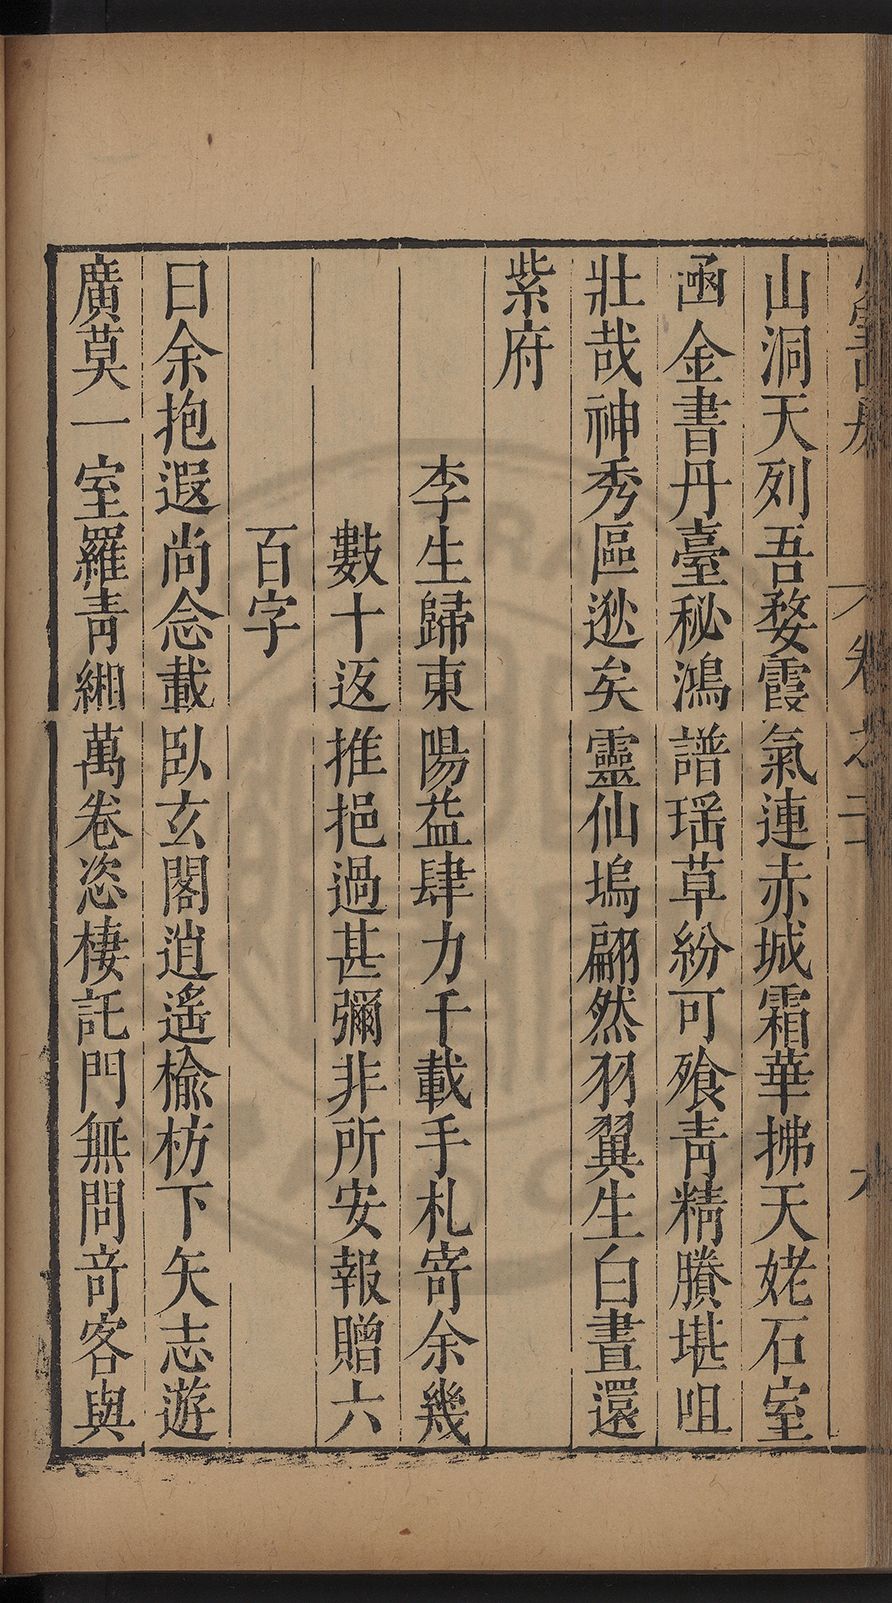 山洞天列吾婺霞氣連赤城霜華拂天姥石室
函金書丹臺秘鴻譜瑶草紛可飱青精賸堪咀
壯哉神秀區逖矣靈仙塢翩然羽翼生白晝還
紫府
李生歸東陽益肆力千載手札寄余幾
數十返推挹過甚彌非所安報贈六
百字
曰余抱遐尚念載臥玄閣逍遙榆枋下矢志遊
廣莫一室羅青緗萬卷恣棲託門無問奇客與